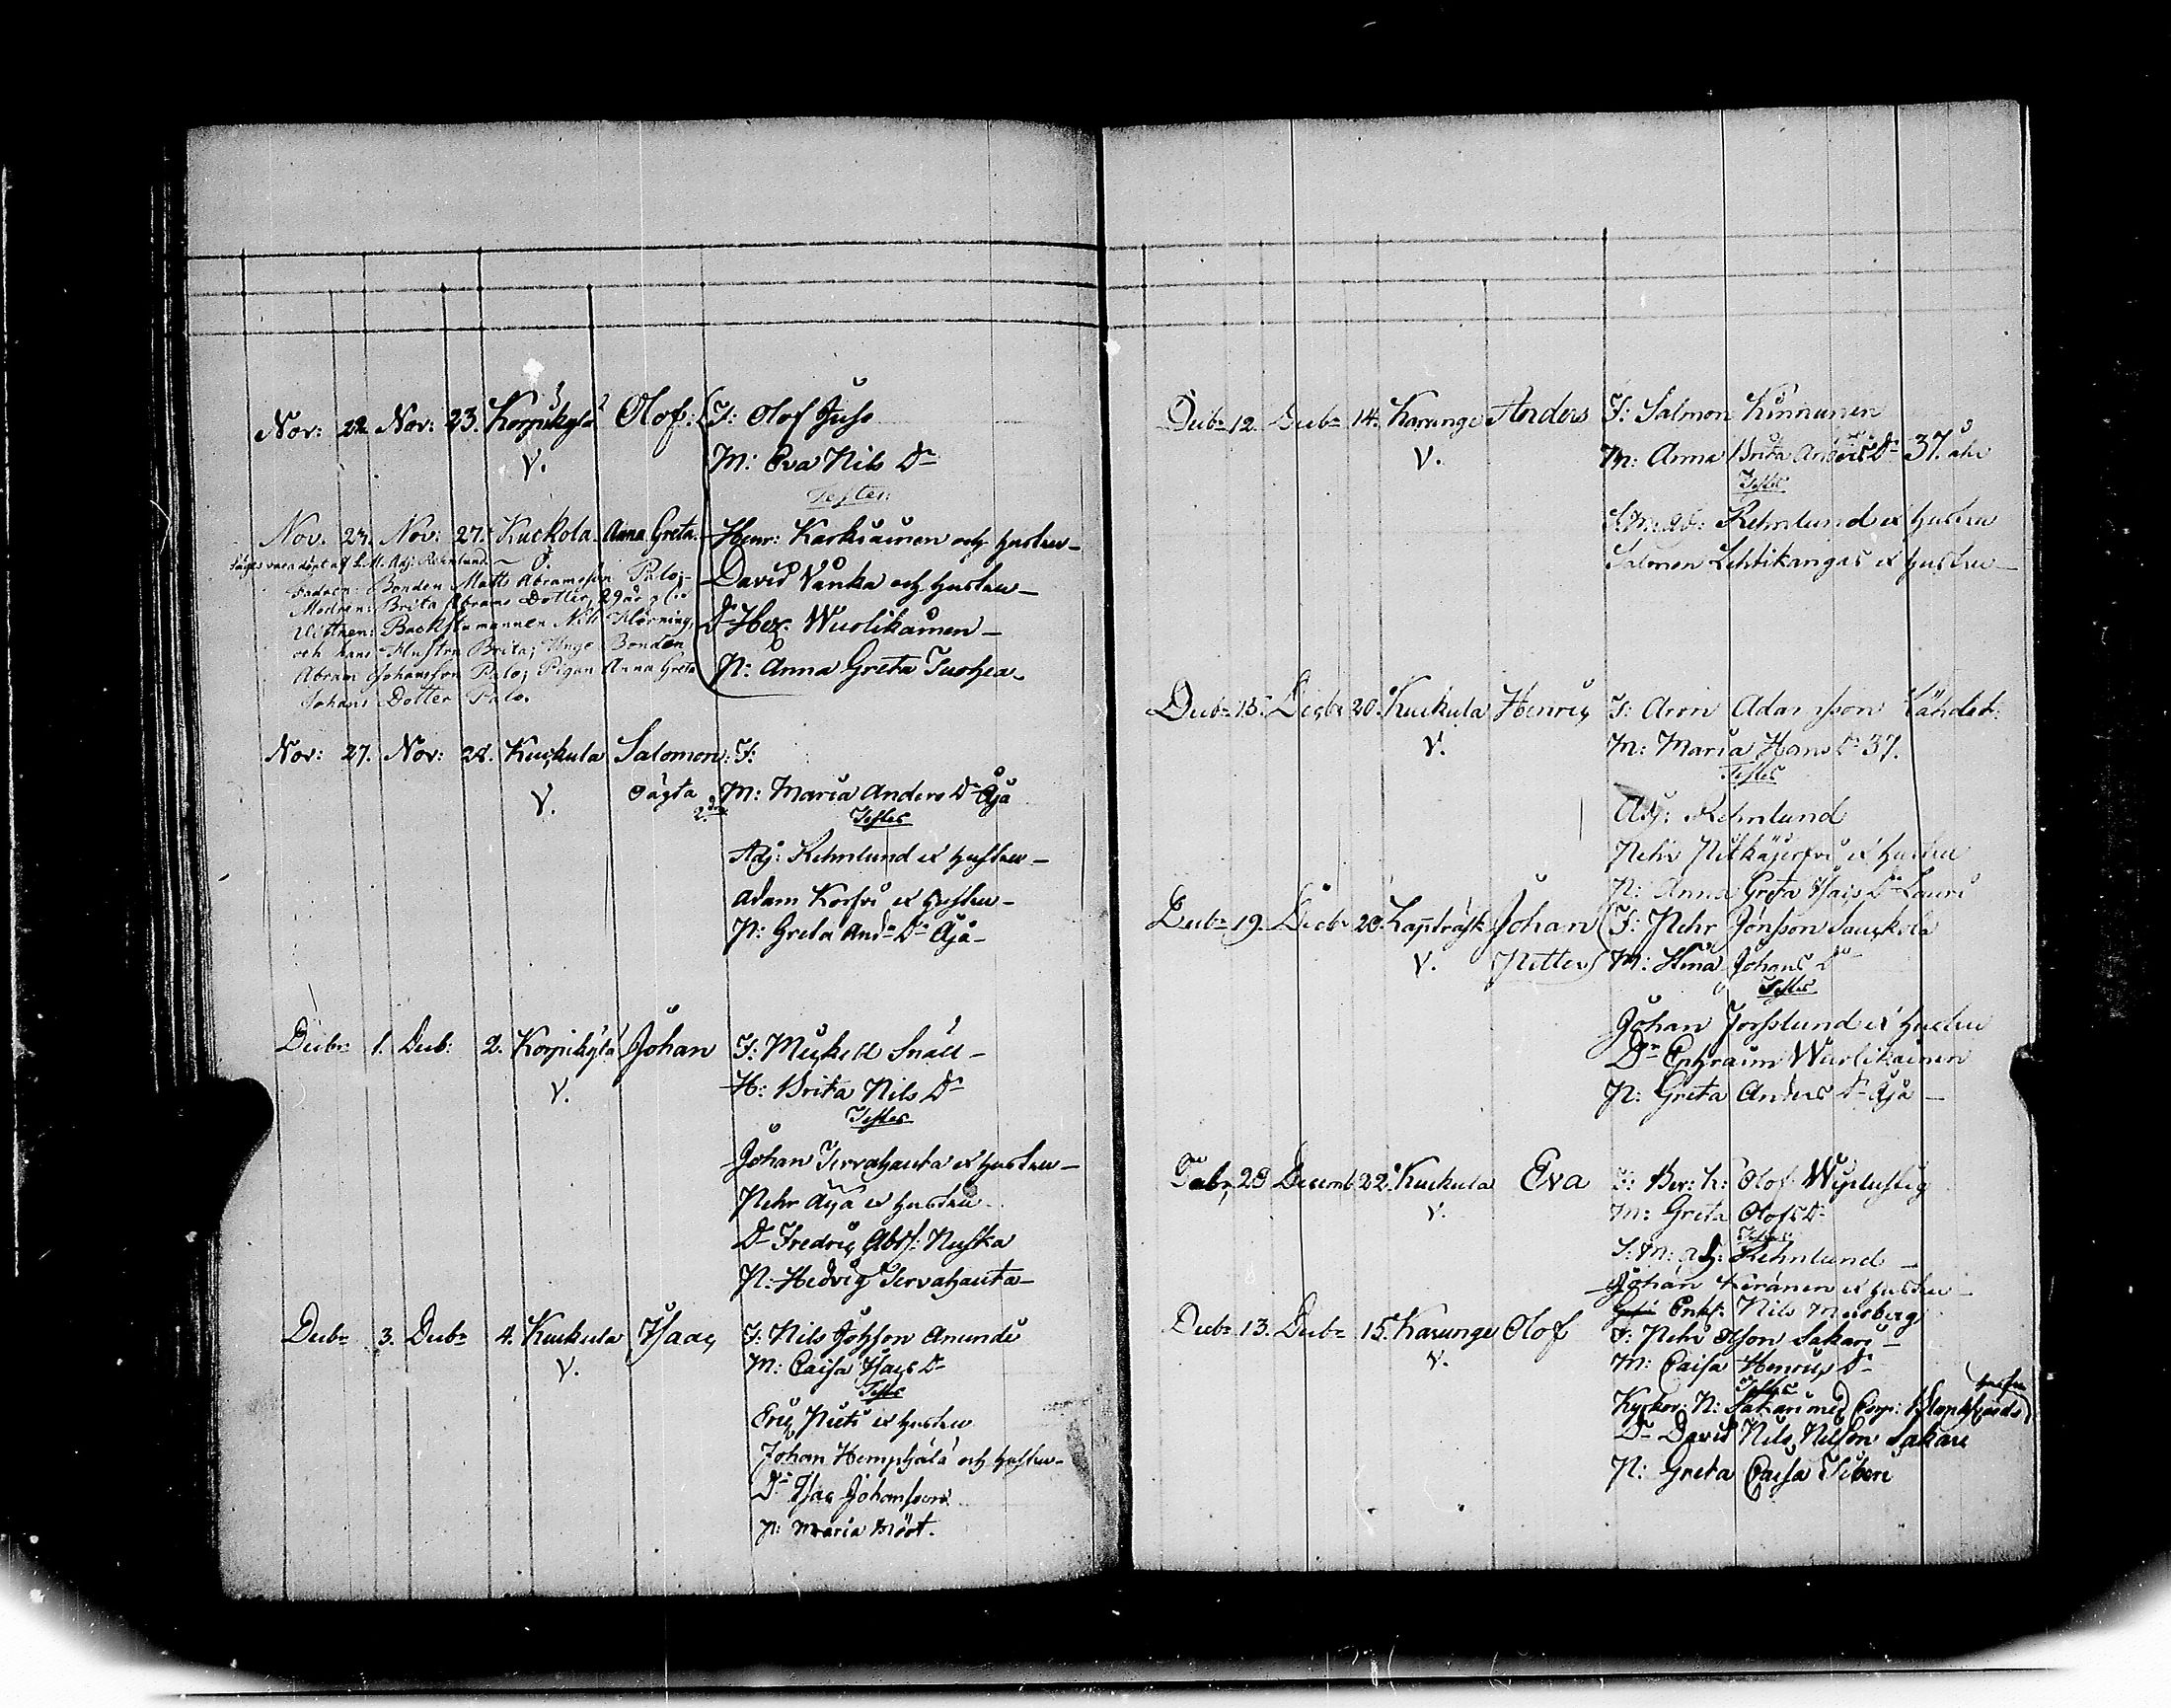 Nov: 22 Nov: 23. Korpikylä Olof: F: Olof Juho
V. M: Eva Nils Dr
Testes
Henr: Karkiainen och hustru
David Vanka och hustru
Dr Hex. Wuolikainen
P: Anna Greta
Nov. 23. Nov: 27. Kuckola. Anna Greta.
Säges vara döpt af S. M. Adj: Rehnlund
Fadren: Bonden Matts Abramsson Palo;
Modren: Brita Abrams Dotter, 29 år
Vittnen: Backstumannen Nils
och hans Hustru Brita; Unge Bonden
Abram Johansson Palo; Pigan Anna Greta
Johans Dotter Palo.
Nov: 27. Nov: 28. Kuckula Salomon: F:
V. oägta M: Maria Anders Dr Äjä
2dra
Testes
Adj: Rehnlund et hustru
Adam Korfvi et hustru
P: Greta And Dr Äjä
Decbr 1. Decb: 2. Korpikylä Johan F: Mickell Snäll
V. M: Brita Nils Dr
Testes
Johan Tervahauta et hustru
Pehr Äijä et hustru
Dr Fredric Abr: Huska
P: Hedvig Tervahauta
Decbr 3. Decbr 4. Kuckula Isaac F: Nils Johsson Anundi
V. M: Caisa Isacs Dr
Testes
Eric Niets et hustru
Johan Hemphälä och hustru
Dr Isac Johansson
P: Maria Mört.
Decbr 12. Decbr 14. Karunge Anders F: Salmon Kinnunen
V. M: Anna Brita Anders Dr 37. åhr
Testes
S. M. Adj: Rehnlund et hustru
Salomon Lehtikangas et hustru
Decbr 15. Decbr 20. Kuckula Henric F: Aron Adamsson Lähdet:
V. M: Maria Hans Dr 37.
Testes
Adj: Rehnlund
Pehr Pitkäjerfvi et hustru
P: Anna Greta Isacs Dr Lauri
Decbr 19. Decbr 20. Lappträsk Johan F: Pehr Jönsson Lauckola
V. Petter M: Stina Johans Dr
Testes
Johan Forsslund et hustru
Dr Ephraim Wuolikainen
P: Greta Anders Dr Äjä
20 Decemb 22. Kuckula Eva F: Olof
V. M: Greta Olofs Dr
Testes
S: M: adj: Rehnlund
Johan Keränen et hustru
Nils Mosberg
Decbr 13. Decbr 15. Karunge Olof F: Pehr Olsson Sakari
V. M: Caisa Henrics Dr
Testes
hustru
Kyrkov: N: Sakari med Corp:
Dr David Nils Nilsson Sakari
P: Greta Caisa